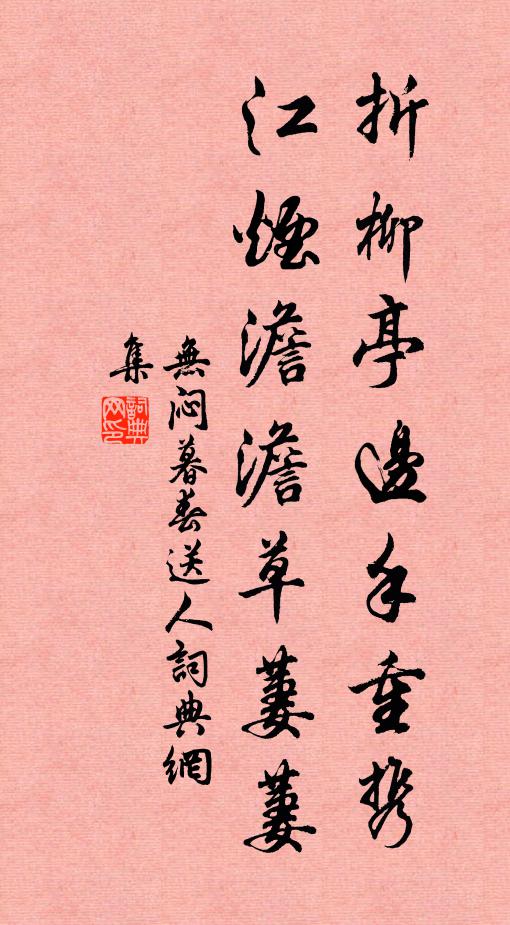 折柳亭邊手重携
江煙澹澹草萋萋
無悶暮春送人詞典網
集
詞典網印